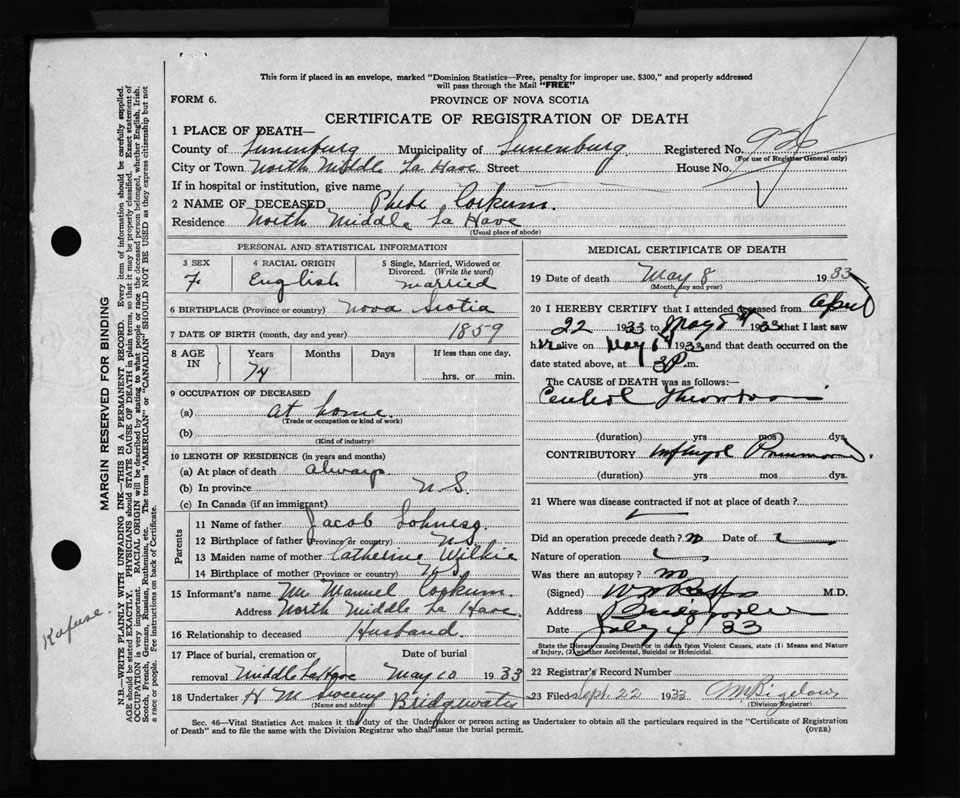 This form if placed in an envelope, marked "Dominion Statistics—Free, penalty for improper use, $300," and properly addressed
will pass through the Mail "FREE"
FORM 6.
PROVINCE OF NOVA SCOTIA
CERTIFICATE OF REGISTRATION OF DEATH
1 PLACE OF DEATH—
County of Lunenburg Municipality of Lunenburg Registered No.
(For use of Registrar General only)
City or Town North Middle La Have Street House No.
If in hospital or institution, give name
2 NAME OF DECEASED Phebe Corkum.
Residence North Middle La Have
(Usual place of abode)
PERSONAL AND STATISTICAL INFORMATION
3 SEX
F.
4 RACIAL ORIGIN
English
5 Single, Married, Widowed or
Divorced. (Write the word)
married
6 BIRTHPLACE (Province or country) Nova Scotia
7 DATE OF BIRTH (month, day and year) 1859
8 AGE
IN
Years
74
Months
Days
If less than one day,
hrs. or min.
9 OCCUPATION OF DECEASED
(a) At home.
(Trade or occupation or kind of work)
(b)
(Kind of industry)
10 LENGTH OF RESIDENCE (in years and months)
(a) At place of death always
(b) In province N.S.
(c) In Canada (if an immigrant)
Parents
11 Name of father Jacob
12 Birthplace of father (Province or country) N.S.
13 Maiden name of mother Catherine Wilkie
14 Birthplace of mother (Province or country) N.S.
15 Informant's name Mr Manuel Corkum.
Address North Middle La Have
16 Relationship to deceased Husband.
17 Place of burial, cremation or
removal Middle LaHave
Date of burial
May 10 1933
18 Undertaker H M Sweeny Bridgewater
(Name and address)
MEDICAL CERTIFICATE OF DEATH
19 Date of death May 8 1933
(Month, day and year)
20 I HEREBY CERTIFY that I attended deceased from April
22 1933 to May 8th 1933 that I last saw
her alive on May 1933 and that death occurred on the
date stated above, at 3 P m.
The CAUSE OF DEATH was as follows:—
(duration) yrs mos dys.
CONTRIBUTORY
(duration) yrs mos dys.
21 Where was disease contracted if not at place of death?
Did an operation precede death? no Date of
Nature of operation
Was there an autopsy? no
(Signed) M.D.
Address Bridgewater
Date July 4 / 33
State the Disease causing Death, or in death from Violent Causes, state (1) Means and Nature
of Injury, (2) whether Accidental, Suicidal or Homicidal.
22 Registrar's Record Number
23 Filed Sept. 22 1933 Bigelow
(Division Registrar)
Sec. 46—Vital Statistics Act makes it the duty of the Undertaker or person acting as Undertaker to obtain all the particulars required in the "Certificate of Registration
of Death" and to file the same with the Division Registrar who shall issue the burial permit.
(OVER)
MARGIN RESERVED FOR BINDING
N.B.—WRITE PLAINLY WITH UNFADING INK—THIS IS A PERMANENT RECORD. Every item of information should be carefully supplied.
AGE should be stated EXACTLY. PHYSICIANS should STATE CAUSE OF DEATH in plain terms, so that it may be properly classified. Exact statement of
OCCUPATION is very important. RACIAL ORIGIN will be described by stating to what people or race the deceased person belonged, whether English, Irish,
Scotch, French, German, Russian, Ruthenian, etc. The terms "AMERICAN" or "CANADIAN" SHOULD NOT BE USED as they express citizenship but not
a race or people. Fee instructions on back of Certificate.